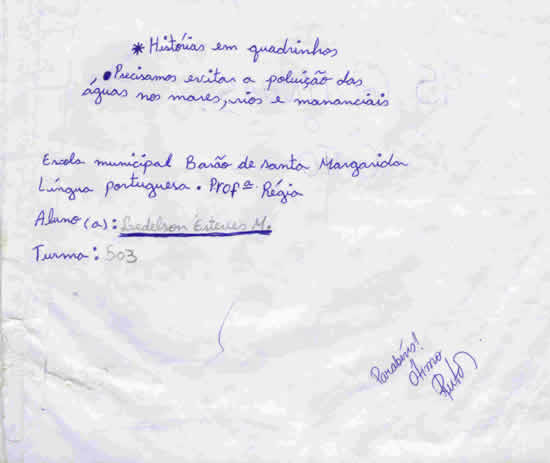 * Histórias em quadrinhos
• Precisamos evitar a poluição das
águas nos mares, rios e mananciais
Escola municipal Barão de santa Margarida
Língua portuguesa. Profª. Régia
Aluno(a): Esteves M.
Turma: 503
Parabéns!
Ótimo